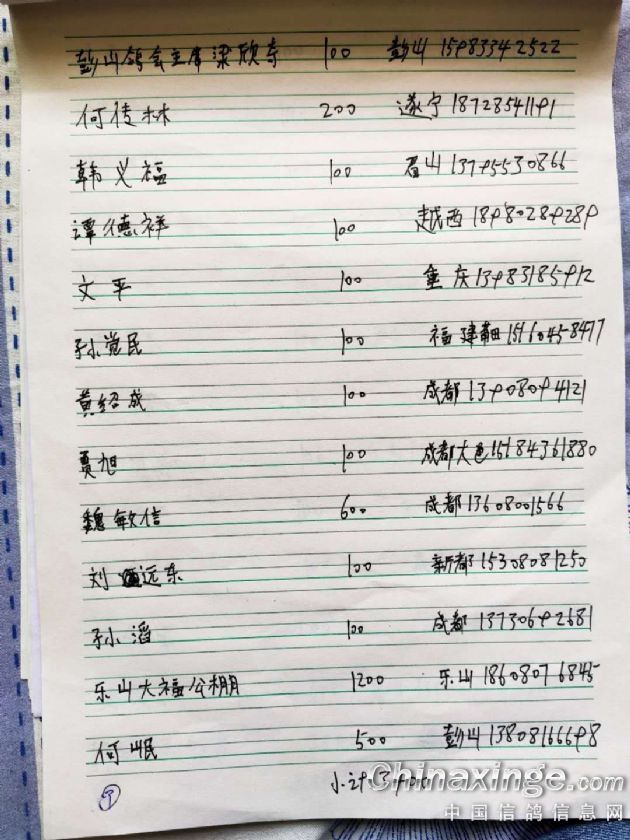 彭山鸽会主席梁欣奇 100 彭山 15983342522
何传林 200 遂宁 18728541191
韩义福 100 眉山 13795530866
谭德祥 100 越西 18980289289
文平 100 重庆 13983185912
孙党民 100 福建莆田 15160458477
黄绍成 100 成都 13908094121
贾旭 100 成都大邑 15184361880
魏敏信 600 成都 13608001566
刘远东 100 新都 15308081250
孙滔 100 成都 13730692681
乐山大福公棚 1200 乐山 18608076845
何岷 500 彭山 13808166698
小计
Chinaxinge.com
中国信鸽信息网